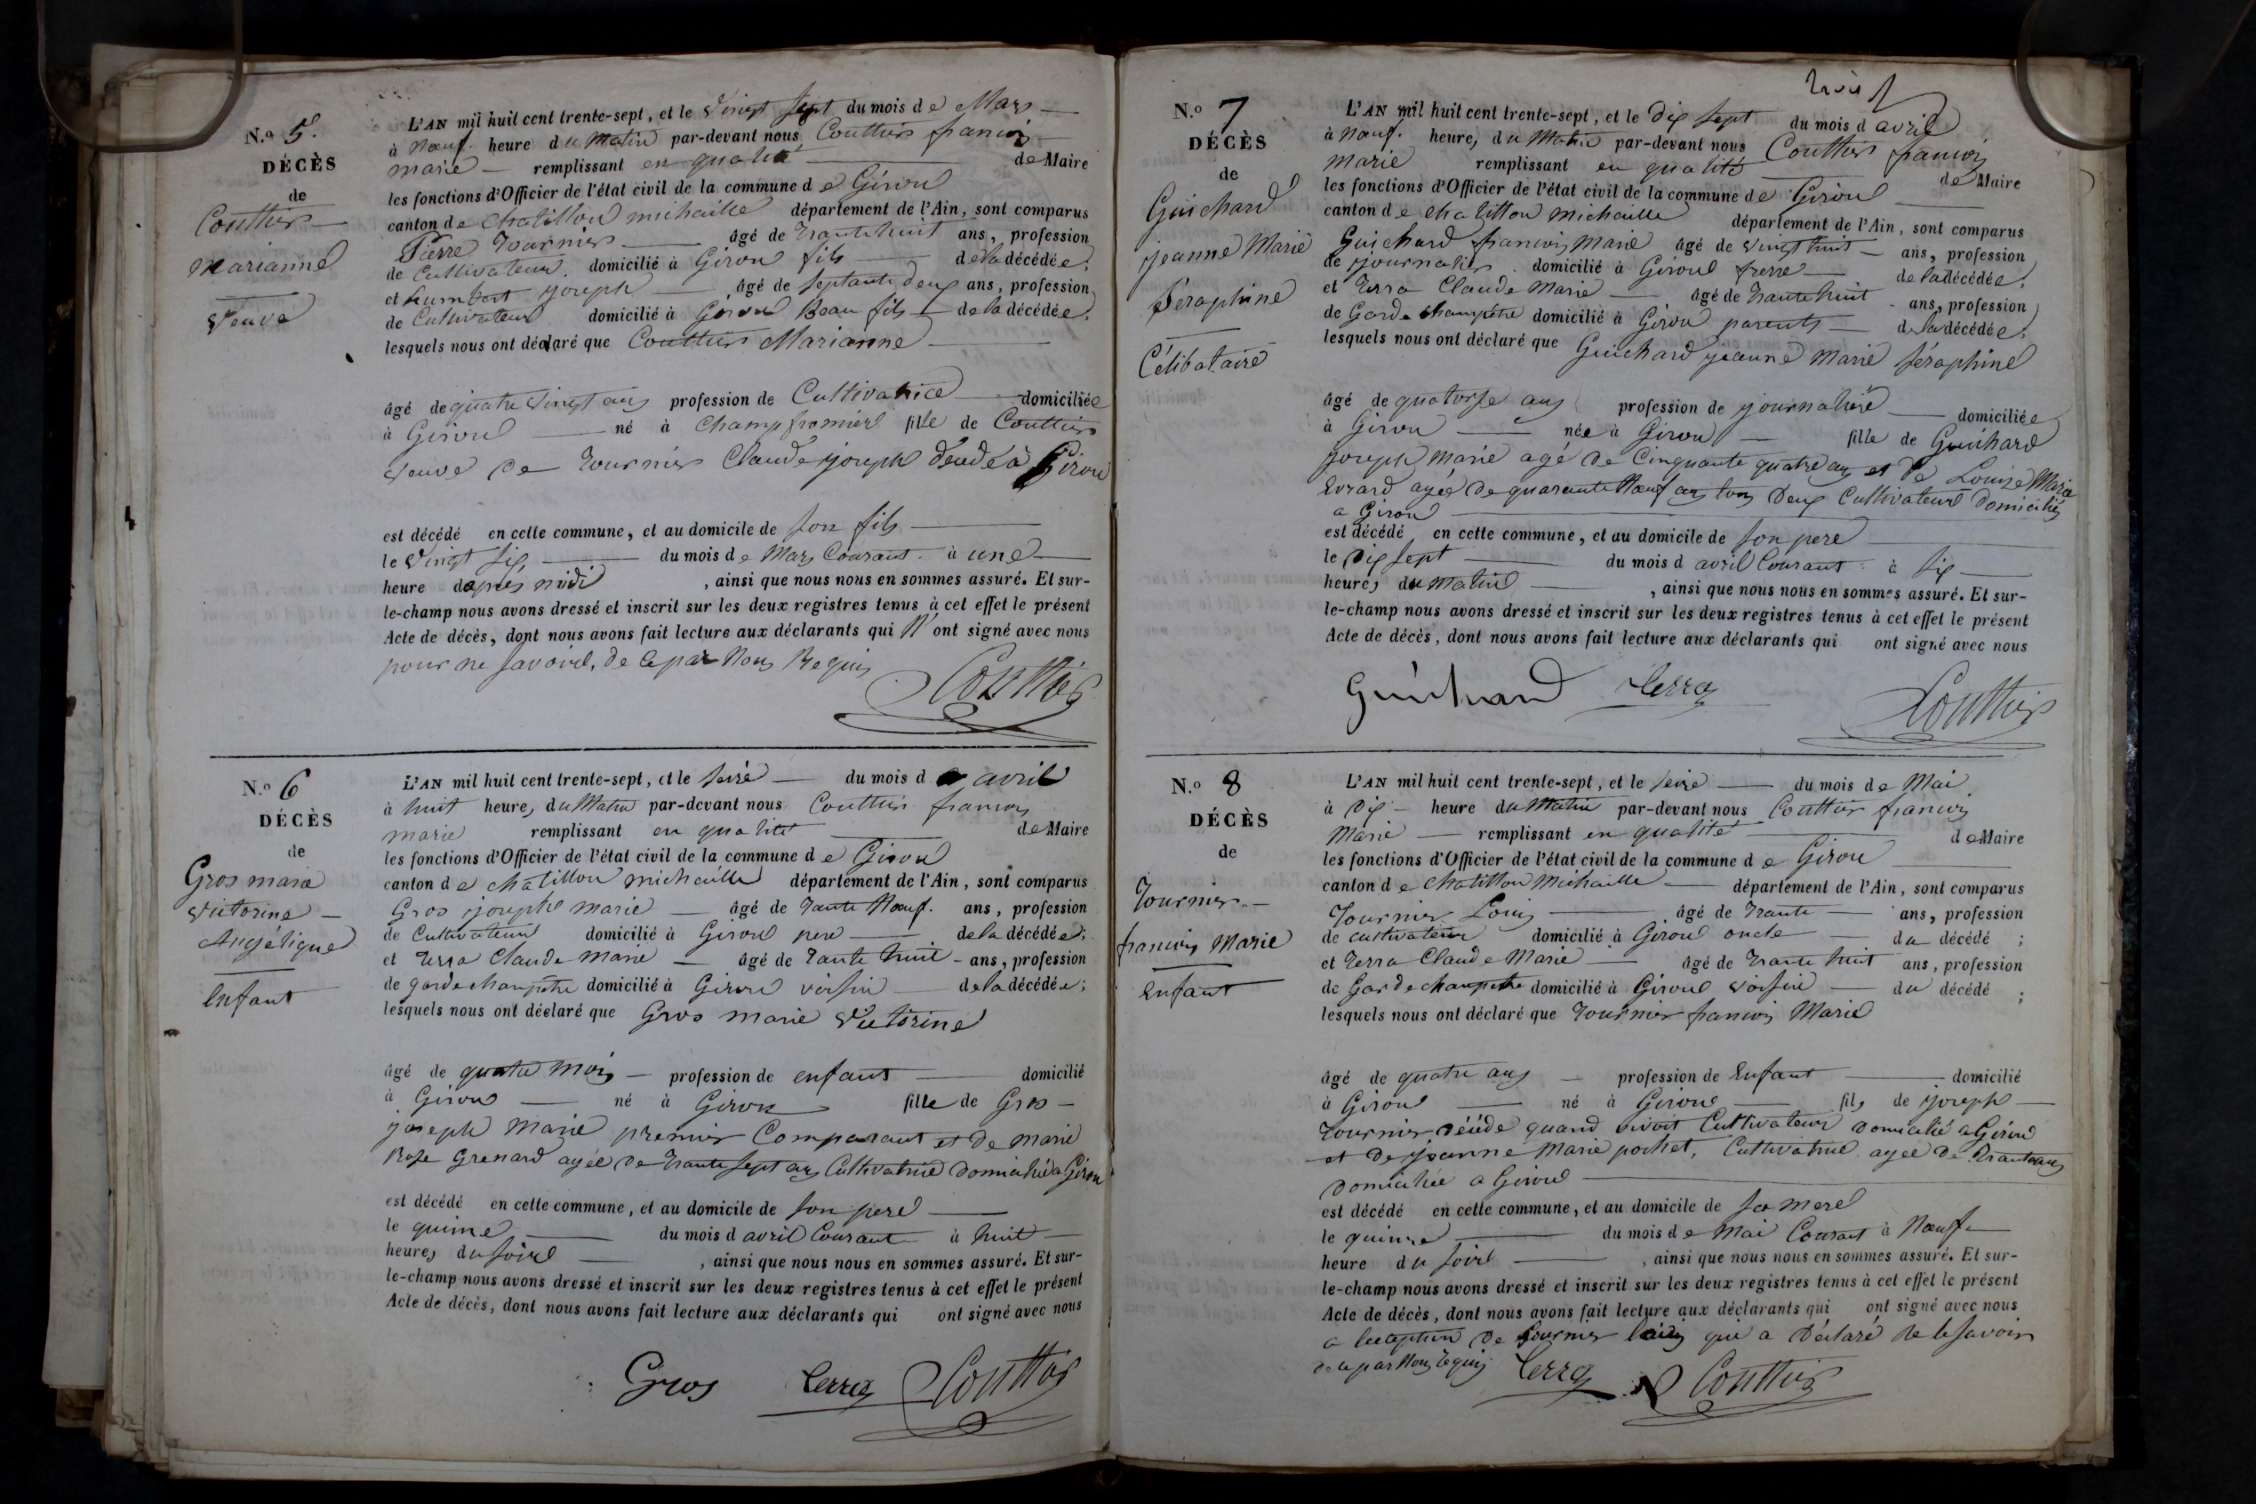 N.o 5.
DÉCÈS
de
Couttier
Marianne
Veuve
L'AN mil huit cent trente-sept, et le vingt sept du mois de Mars
à Nœuf heure du Matin par-devant nous Couttier francois
marie remplissant en qualité de Maire
les fonctions d'Officier de l'état civil de la commune de Giron
canton de chatillon michaille département de l'Ain, sont comparus
Pierre Tournier âgé de trante huit ans, profession
de Cultivateur domicilié à Giron fils de la décédée;
et humbert joseph âgé de septante deux ans, profession
de Cultivateur domicilié à Giron Beau fils de la décédée;
lesquels nous ont déclaré que Couttier Marianne
âgé de quatre vingt ans profession de Cultivatrice domiciliée
à Giron né à Champfromier fille de Couttier
veuve de Tournier Claude joseph décédé à Giron
est décédé en cette commune, et au domicile de son fils
le vingt six du mois de Mars Courant à une
heure d'après midi, ainsi que nous nous en sommes assuré. Et sur-
le-champ nous avons dressé et inscrit sur les deux registres tenus à cet effet le présent
Acte de décès, dont nous avons fait lecture aux déclarants qui N'ont signé avec nous
pour ne savoir, de ce par Nous Requis
Couttier
N.o 6
DÉCÈS
de
Gros marie
victorine
Angélique
Enfant
L'AN mil huit cent trente-sept, et le seize du mois d avril
à huit heures du Matin par-devant nous Couttier francois
marie remplissant en qualité de Maire
les fonctions d'Officier de l'état civil de la commune de Giron
canton de chatillon michaille département de l'Ain, sont comparus
Gros joseph marie âgé de trante Nœuf ans, profession
de Cultivateur domicilié à Giron pere de la décédée;
et Terra Claude Marie âgé de trante huit ans, profession
de garde champêtre domicilié à Giron voisin de la décédée;
lesquels nous ont déclaré que Gros marie Victorine
âgé de quatre mois profession de enfant domicilié
à Giron né à Giron fille de Gros
joseph Marie premier Comparant et de marie
Rose Grenard agée de trante sept ans Cultivatrice domiciliée a Giron
est décédé en cette commune, et au domicile de son pere
le quinze du mois d avril Courant à huit
heures du soir, ainsi que nous nous en sommes assuré. Et sur-
le-champ nous avons dressé et inscrit sur les deux registres tenus à cet effet le présent
Acte de décès, dont nous avons fait lecture aux déclarants qui ont signé avec nous
Gros Terra Couttier
trois
N.o 7
DÉCÈS
de
Guichard
jeanne Marie
séraphine
Célibataire
L'AN mil huit cent trente-sept, et le dix sept du mois d avril
à nœuf heures du Matin par-devant nous Couttier francois
marie remplissant en qualité de Maire
les fonctions d'Officier de l'état civil de la commune de Giron
canton de chatillon michaille département de l'Ain, sont comparus
Guichard francois Marie âgé de vingt huit ans, profession
de journalier domicilié à Giron frerre de la décédée;
et Terra Claude Marie âgé de trante huit ans, profession
de Garde champêtre domicilié à Giron parents de la décédée;
lesquels nous ont déclaré que Guichard jeanne Marie séraphine
âgé de quatorse ans profession de journalière domiciliée
à Giron née à Giron fille de Guichard
joseph marie agé de Cinquante quatre ans et de Louise Marie
Evrard agée de quarante Nœuf ans tous deux Cultivateurs domiciliés
a Giron
est décédé en cette commune, et au domicile de son pere
le Dix sept du mois d avril Courant à six
heures du Matin, ainsi que nous nous en sommes assuré. Et sur-
le-champ nous avons dressé et inscrit sur les deux registres tenus à cet effet le présent
Acte de décès, dont nous avons fait lecture aux déclarants qui ont signé avec nous
Guichard Terra Couttier
N.o 8
DÉCÈS
de
Tournier
francois Marie
Enfant
L'AN mil huit cent trente-sept, et le seize du mois de Mai
à dix heure du Matin par-devant nous Couttier francois
Marie remplissant en qualité de Maire
les fonctions d'Officier de l'état civil de la commune de Giron
canton de Chatillon Michaille département de l'Ain, sont comparus
Tournier Louis âgé de trante ans, profession
de cultivateur domicilié à Giron oncle du décédé;
et Terra Claude Marie âgé de trante huit ans, profession
de Garde champetre domicilié à Giron voisin du décédé;
lesquels nous ont déclaré que Tournier francois Marie
âgé de quatre ans profession de Enfant domicilié
à Giron né à Giron fils de joseph
Tournier décédé quand vivoit Cultivateur domicilié a Giron
et de jeanne Marie pochet, Cultivatrice agée de trante ans
domiciliée a Giron
est décédé en cette commune, et au domicile de sa mere
le quinze du mois de Mai Courant à Nœuf
heure du soir, ainsi que nous nous en sommes assuré. Et sur-
le-champ nous avons dressé et inscrit sur les deux registres tenus à cet effet le présent
Acte de décès, dont nous avons fait lecture aux déclarants qui ont signé avec nous
a lexception de Tournier Louis qui a déclaré ne le savoir
de ce par Nous requis Terra Couttier